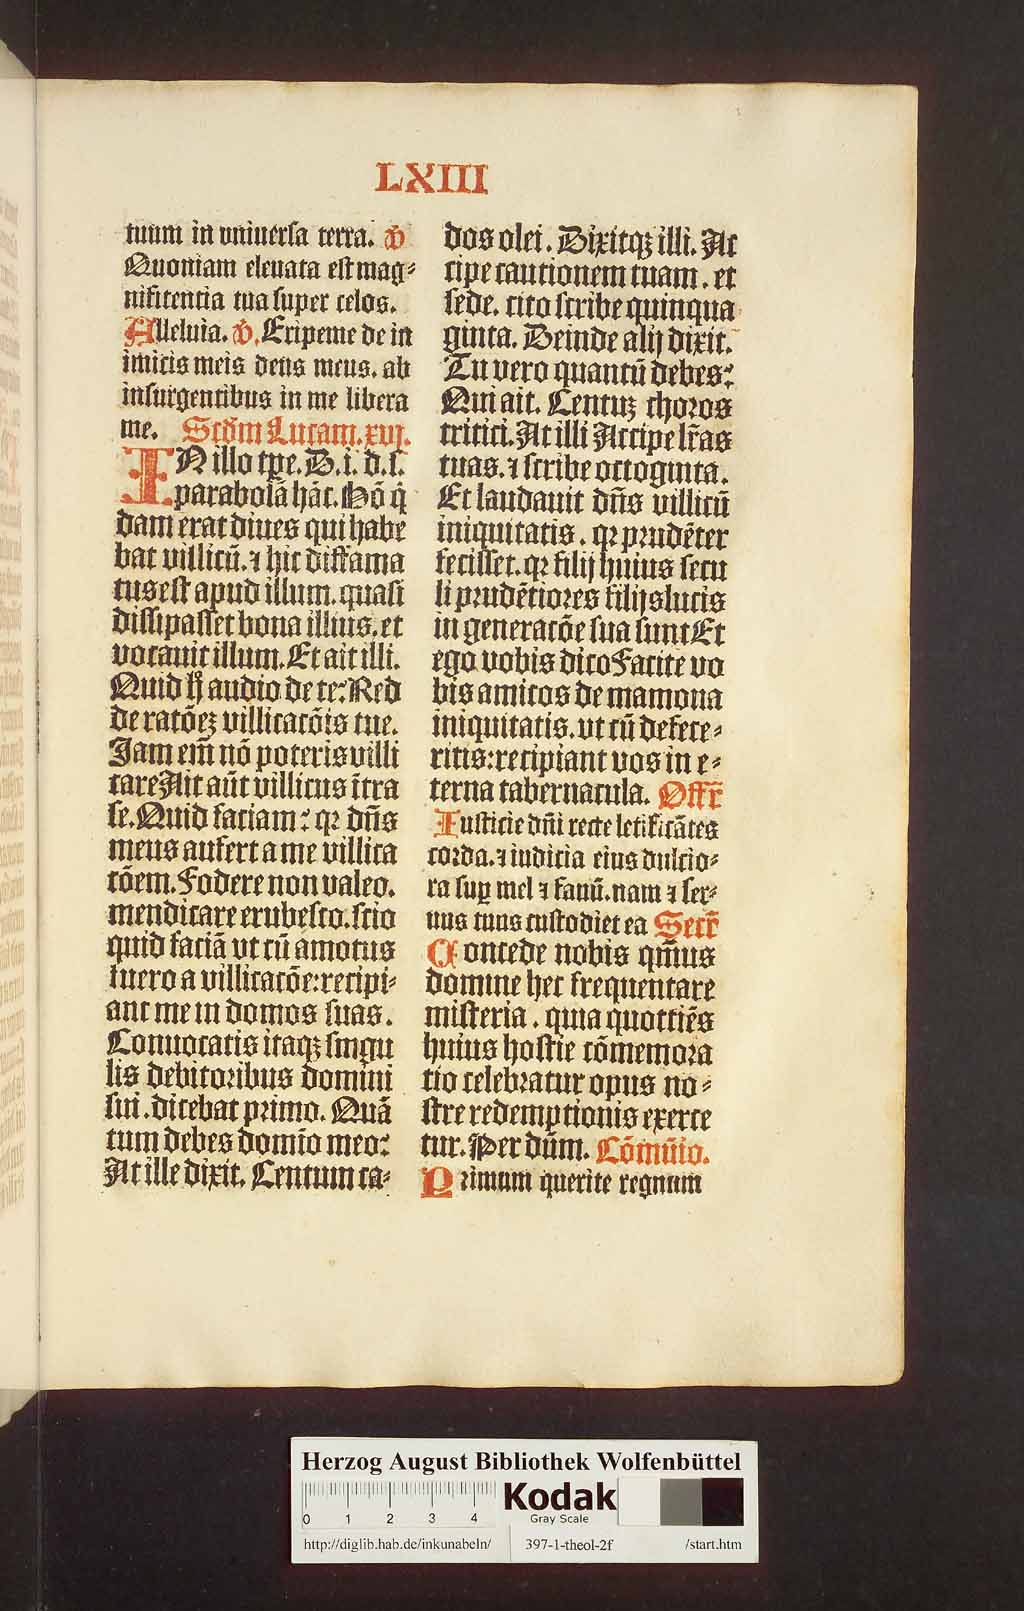 LXIII
tuum in vniuersa terra. v̄
Quoniam eleuata est mag⸗
nificentia tua super celos.
Alleluia. v̄. Eripe me de in
imicis meis deus meus. ab
insurgentibus in me libera
me. Scd̄m Lucam. xvj.
IN illo tp̄e. D. i. d. s.
parabolā hāc. Hō q̇
dam erat diues qui habe
bat villicū. ⁊ hic diffama
tus est apud illum. quasi
dissipasset bona illius. et
vocauit illum. Et ait illi.
Quid h̄ audio de te: Red
de ratōeꝫ villicatōis tue.
Jam em̄ nō poteris villi
care Ait aūt villicus ītra
se. Quid faciam: qꝛ dn̄s
meus aufert a me villica
tōem. Fodere non valeo.
mendicare erubesco. scio
quid faciā vt cū amotus
fuero a villicatōe: recipi⸗
ant me in domos suas.
Conuocatis itaqꝫ singu
lis debitoribus domini
sui. dicebat primo. Quā
tum debes domīo meo:
At ille dixit. Centum ca⸗
dos olei. Dixitqꝫ illi. Ac
cipe cautionem tuam. et
sede. cito scribe quinqua
ginta. Deinde alij dixit.
Tu vero quantū debes:
Qui ait. Centuꝫ choros
tritici. At illi Accipe lr̄as
tuas. ⁊ scribe octoginta.
Et laudauit dn̄s villicū
iniquitatis. qꝛ prudēter
fecisset. qꝛ filij huius secu
li prudētiores filijs lucis
in generatōe sua sunt Et
ego vobis dico Facite vo
bis amicos de mamona
iniquitatis. vt cū defece⸗
ritis: recipiant vos in e⸗
terna tabernacula. Offr̄
Iusticie dn̄i recte letificātes
corda. ⁊ iudicia eius dulcio⸗
ra suꝑ mel ⁊ fauū. nam ⁊ ser⸗
uus tuus custodiet ea Secr̄
Concede nobis qm̄us
domine hec frequentare
misteria. quia quotiēs
huius hostie cōmemora
tio celebratur opus no⸗
stre redemptionis exerce
tur. Per dūm. Cōmūio.
Primum querite regnum
Herzog August Bibliothek Wolfenbüttel
0 1 2 3 4
Kodak
Gray Scale
http://diglib.hab.de/inkunabeln/ 397-1-theol-2f /start.htm